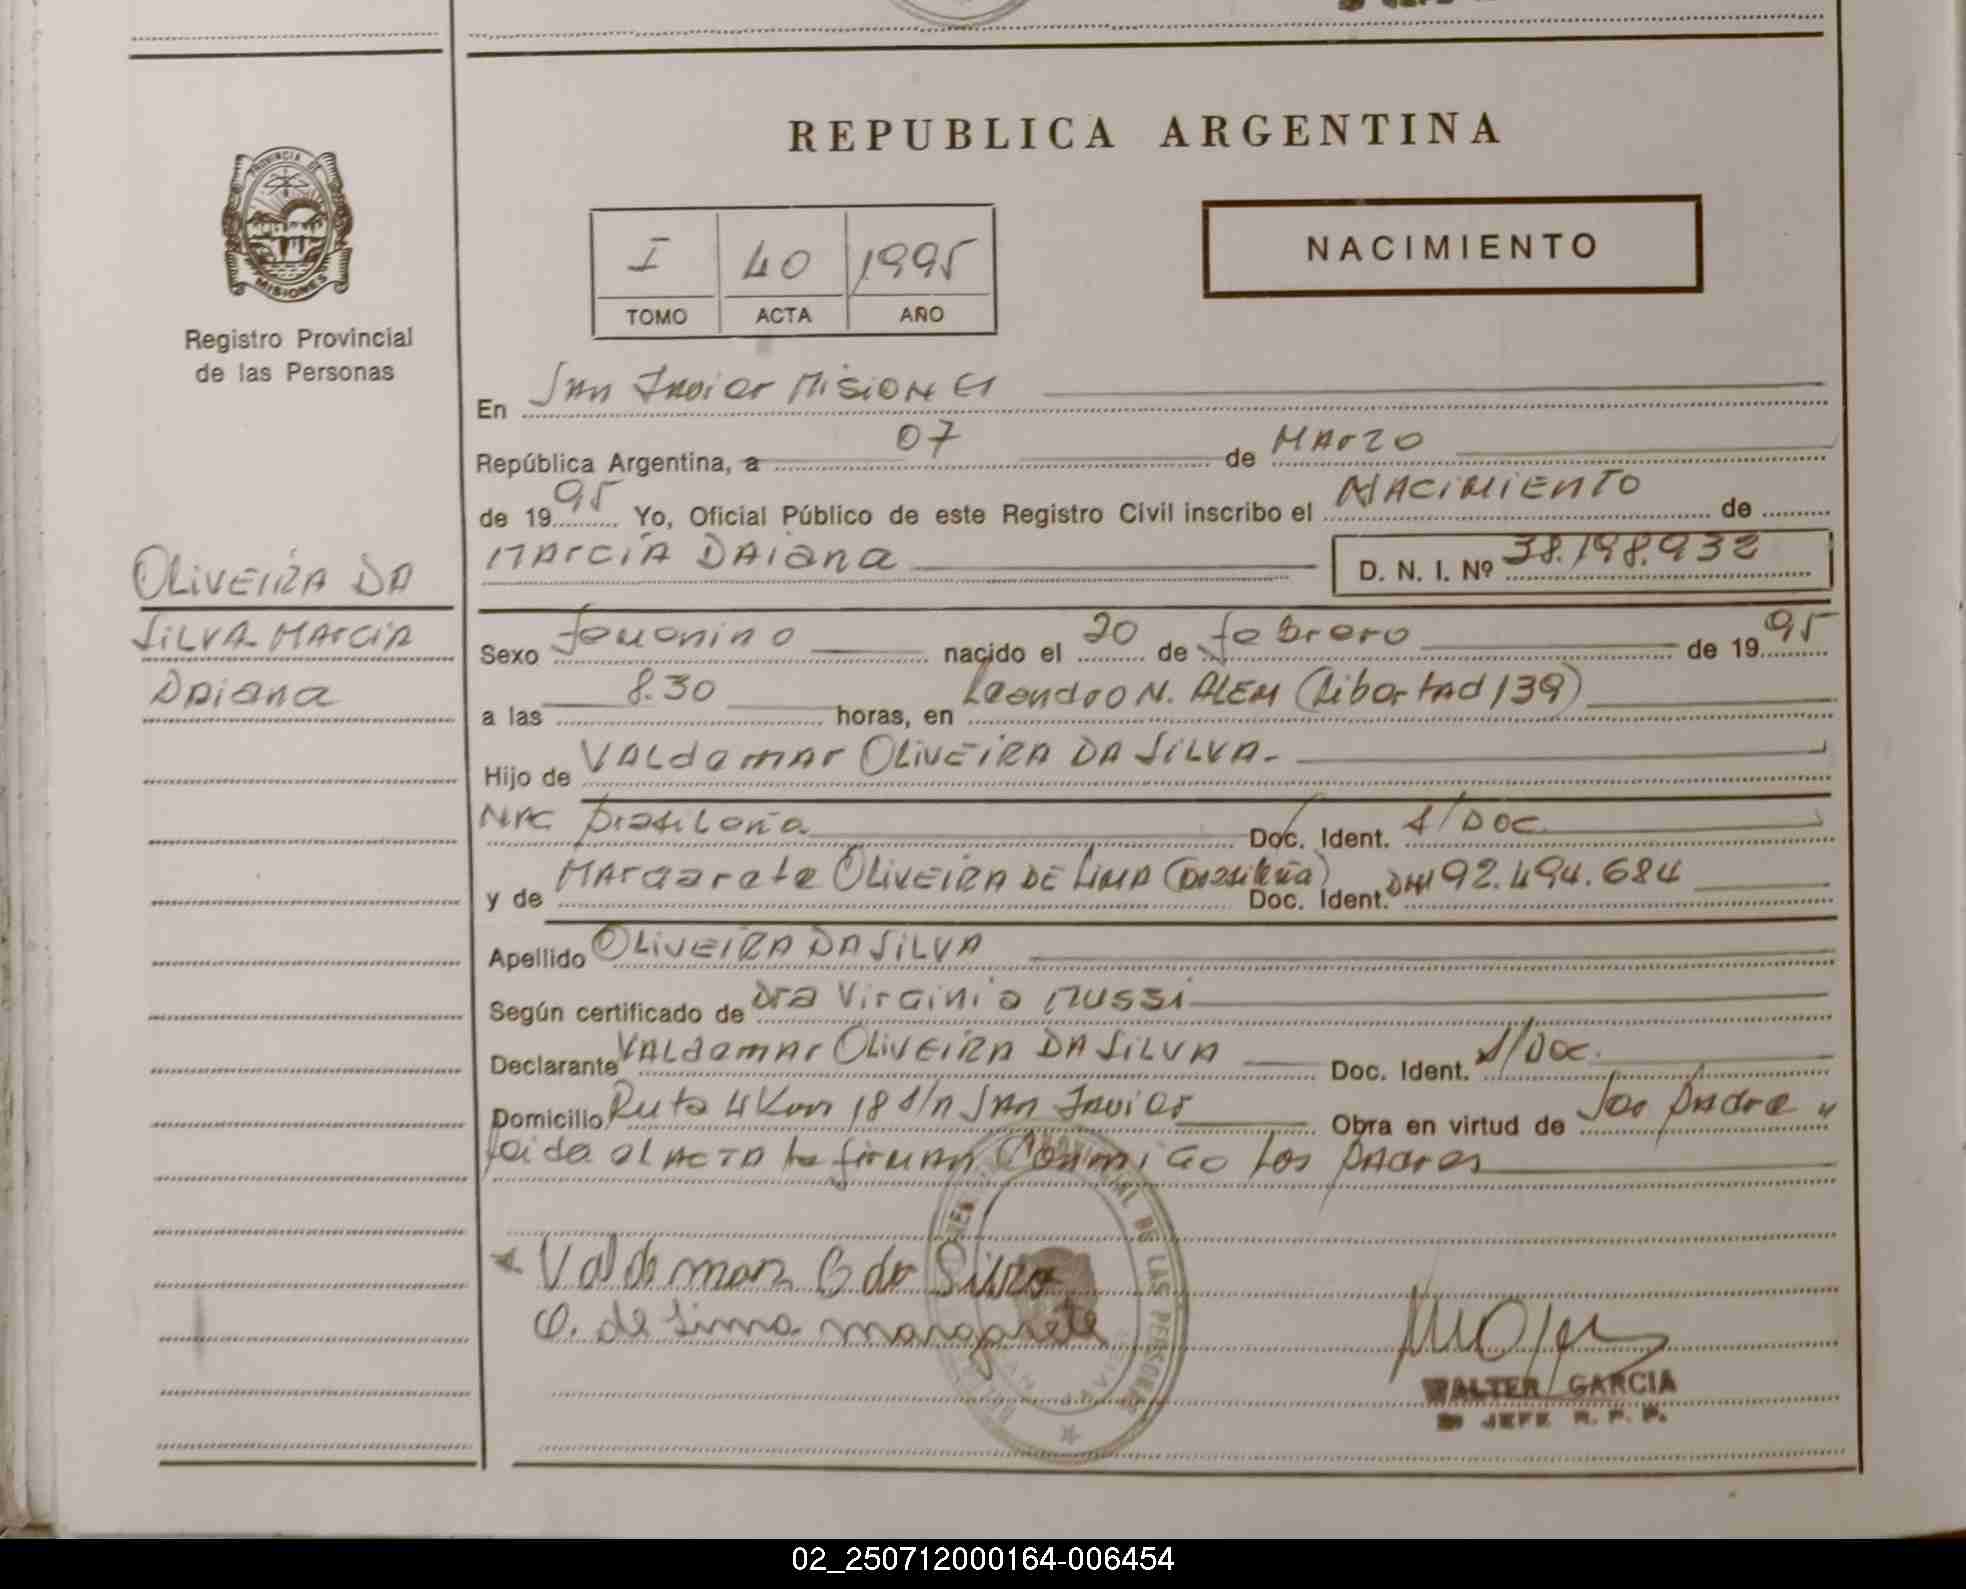 REPUBLICA ARGENTINA
PROVINCIA DE
MISIONES
Registro Provincial
de las Personas
I 40 1995
TOMO ACTA AÑO
NACIMIENTO
En San Javier Misiones
República Argentina, a 07 de Marzo
de 1995 Yo, Oficial Público de este Registro Civil inscribo el Nacimiento de
Marcia Daiana D. N. I. Nº 38.198.932
OLIVEIRA DA
SILVA MARCIA
Daiana
Sexo femenino nacido el 20 de febrero de 1995
a las 8.30 horas, en Leandro N. Alem (Libertad 139)
Hijo de Valdemar Oliveira da Silva.
Nac Brasileña Doc. Ident. s/Doc
y de Margarete Oliveira de Lima (Brasileña) Doc. Ident. DNI 92.494.684
Apellido Oliveira da Silva
Según certificado de Dra Virginia Mussi
Declarante Valdemar Oliveira da Silva Doc. Ident. s/Doc.
Domicilio Ruta 4 Km 18 s/n San Javier Obra en virtud de Ser padre y
leida el acta la firman conmigo los padres
Valdemar O da Silva
O. de Lima Margarete
WALTER GARCIA
JEFE R. P. P.
02_250712000164-006454